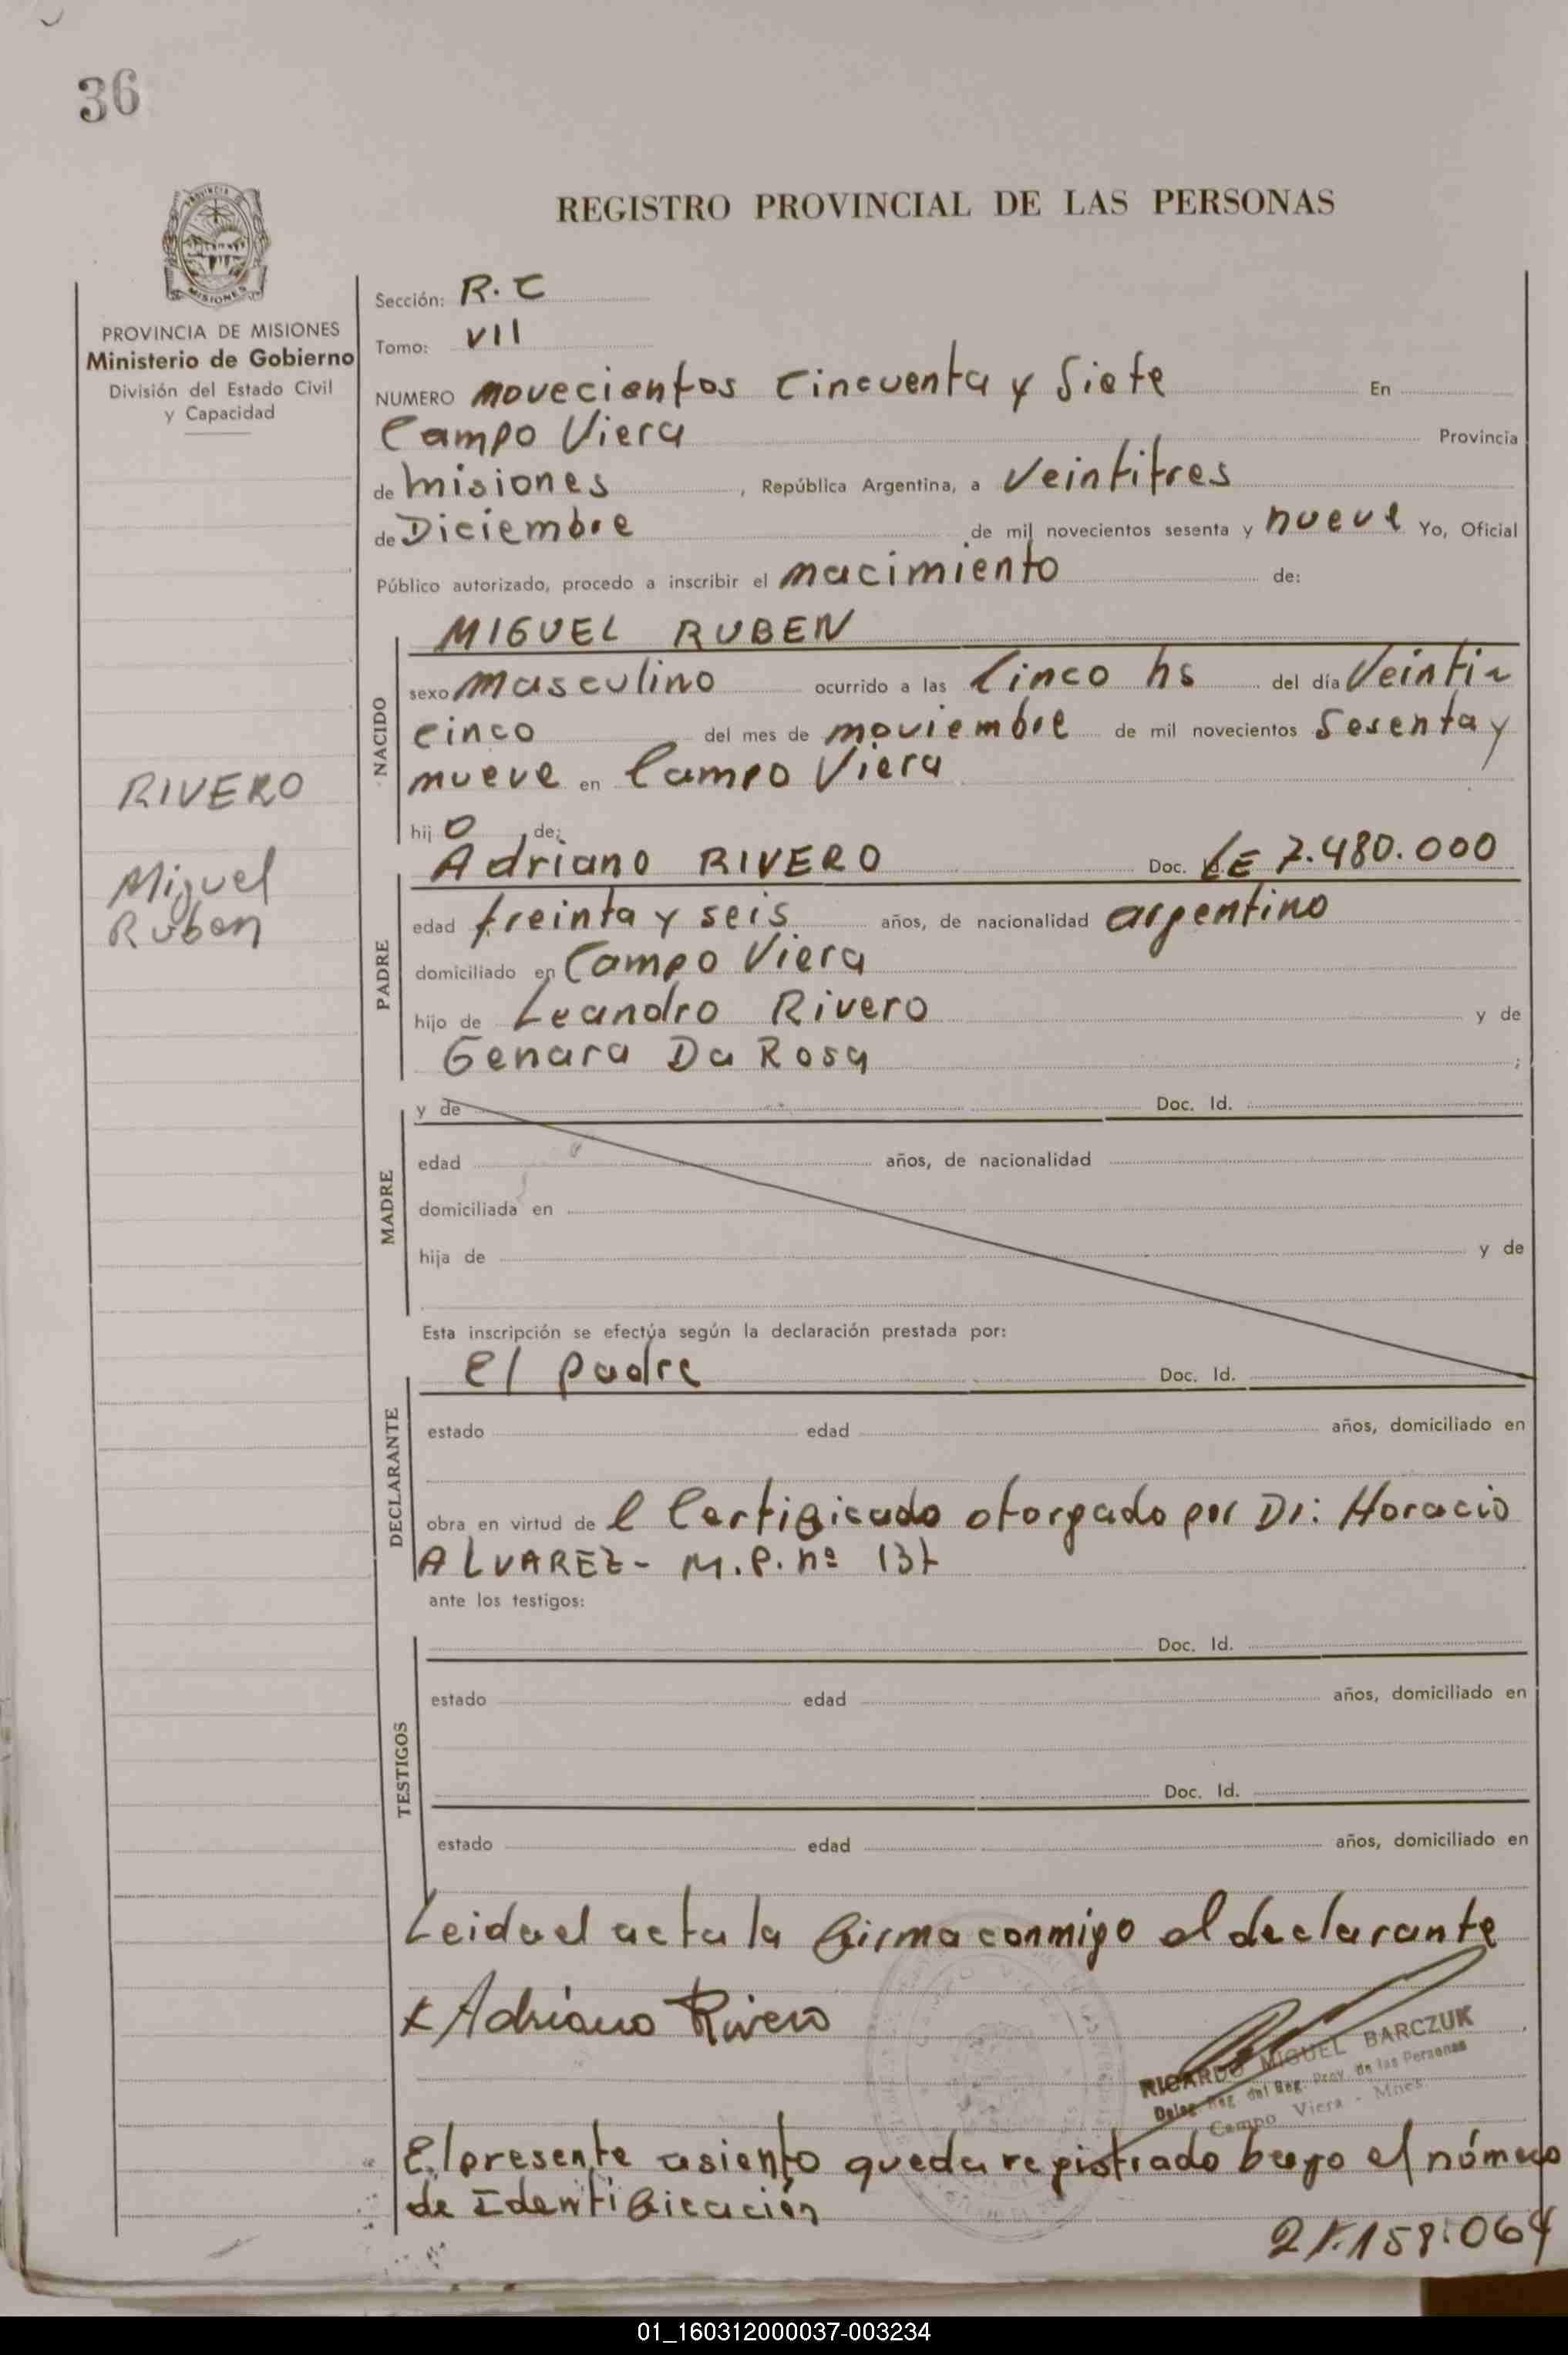 36
REGISTRO PROVINCIAL DE LAS PERSONAS
PROVINCIA DE MISIONES
Ministerio de Gobierno
División del Estado Civil
y Capacidad
RIVERO
Miguel
Ruben
Sección: R.C
Tomo: VII
NUMERO novecientos Cincuenta y Siete En
Campo Viera Provincia
de misiones, República Argentina, a Veintitres
de Diciembre de mil novecientos sesenta y nueve Yo, Oficial
Público autorizado, procedo a inscribir el nacimiento de:
NACIDO
MIGUEL RUBEN
sexo masculino ocurrido a las Cinco hs del día Veinti-
cinco del mes de noviembre de mil novecientos Sesenta y
nueve en Campo Viera
hijo de:
PADRE
Adriano RIVERO Doc. LE 7.480.000
edad treinta y seis años, de nacionalidad argentino
domiciliado en Campo Viera
hijo de Leandro Rivero y de
Genara Da Rosa ;
MADRE
y de Doc. Id.
edad años, de nacionalidad
domiciliada en
hija de y de
Esta inscripción se efectúa según la declaración prestada por:
DECLARANTE
el padre Doc. Id.
estado edad años, domiciliado en
obra en virtud de l Certificado otorgado por Dr: Horacio
ALVAREZ - M.P. nº
ante los testigos:
TESTIGOS
Doc. Id.
estado edad años, domiciliado en
Doc. Id.
estado edad años, domiciliado en
Leida el acta la firma conmigo el declarante
x Adriano Rivero
RICARDO MIGUEL BARCZUK
Deleg. Reg. del Reg. Prov. de las Personas
Campo Viera - Mnes.
El presente asiento queda registrado bajo el número
de Identificación
01_160312000037-003234